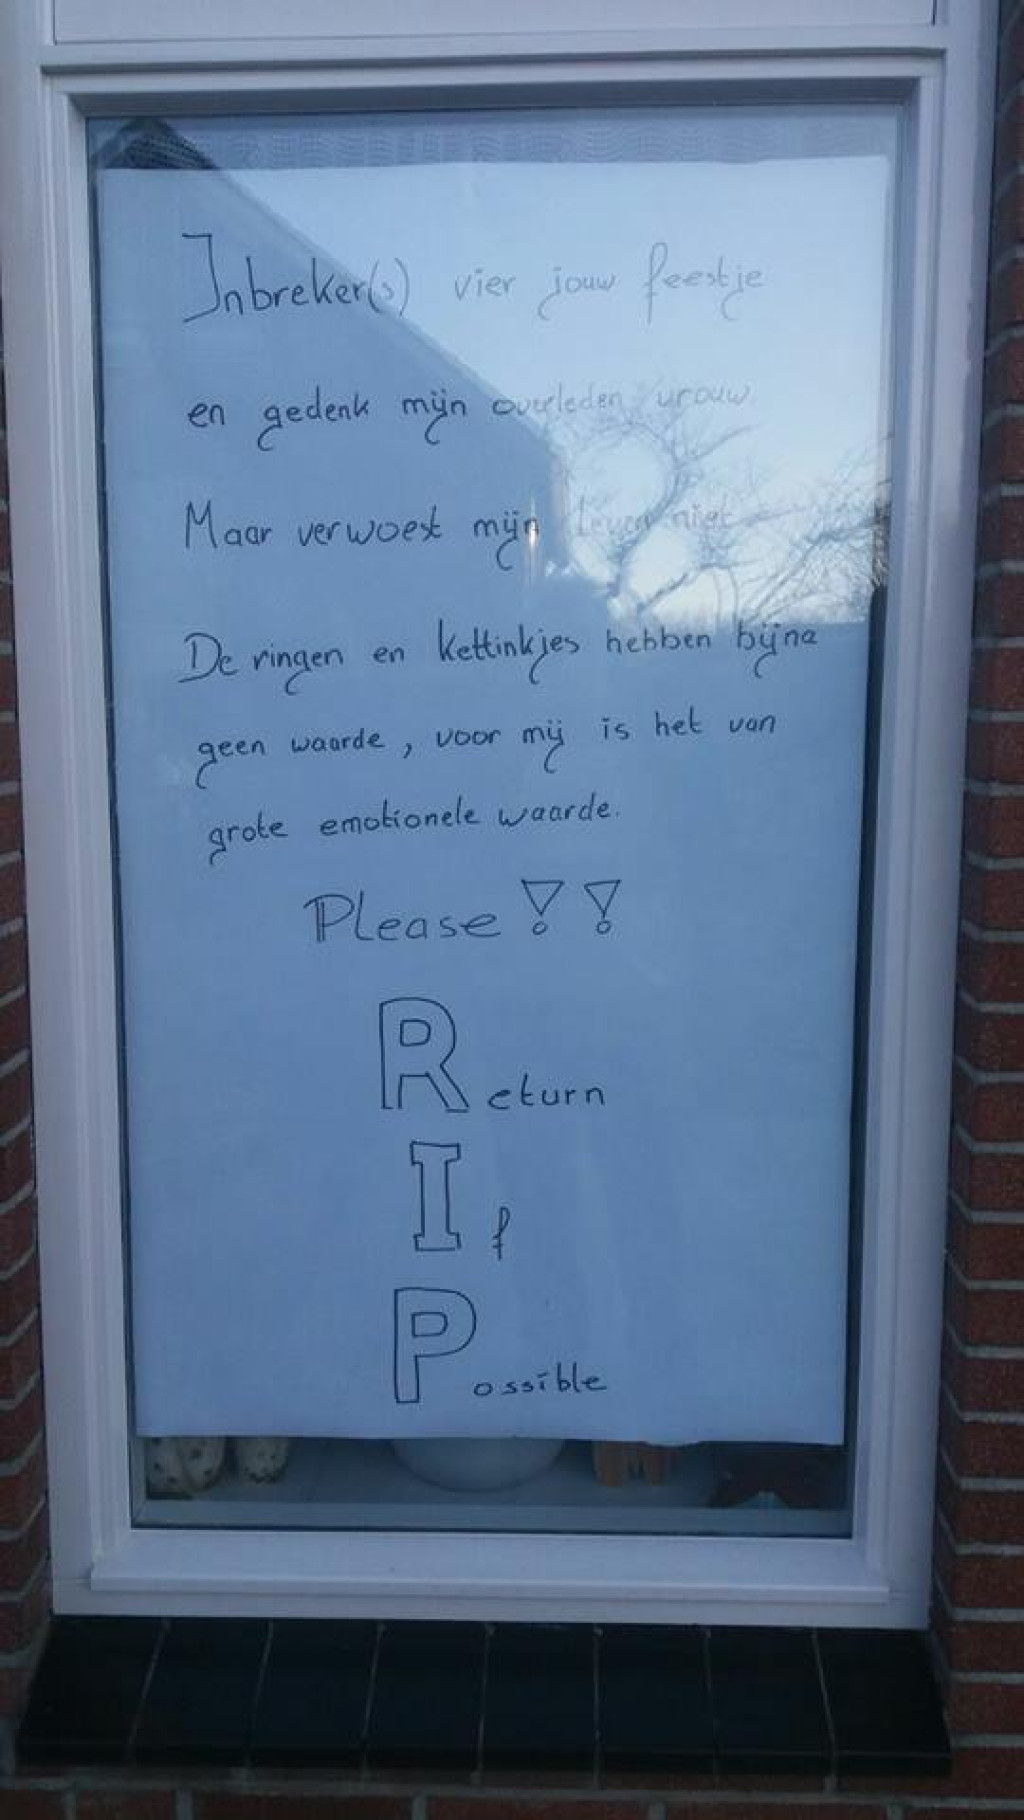 Inbreker(s) vier jouw feestje
en gedenk mijn overleden vrouw.
Maar verwoest mijn leven niet
De ringen en kettinkjes hebben bijna
geen waarde, voor mij is het van
grote emotionele waarde.
Please!!
Return
If
Possible